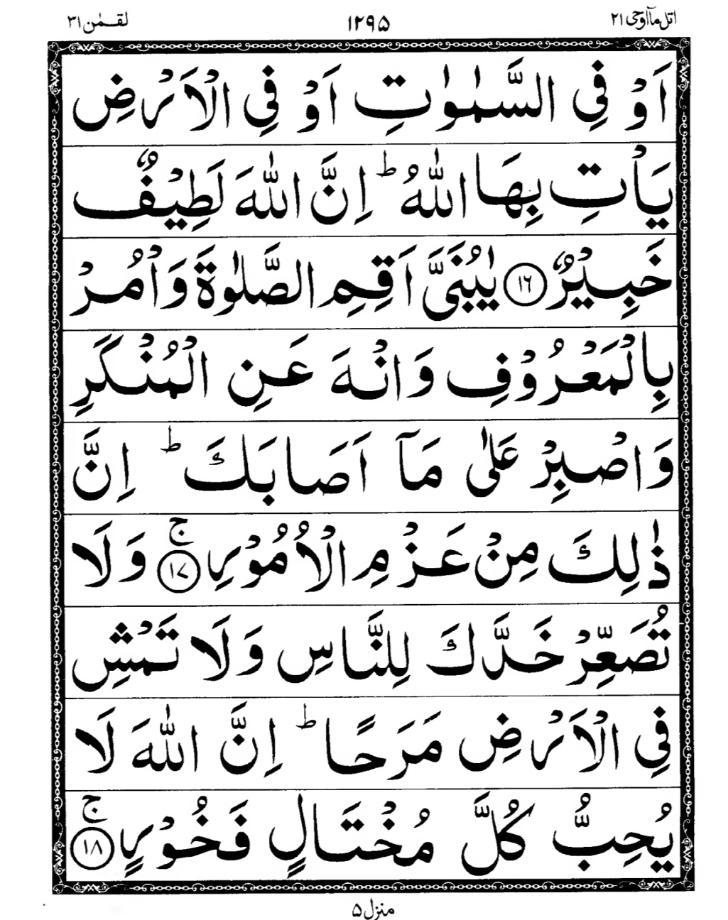 اتل مآ اوحی ۲۱ ۱۲۹۵ لقمٰن ۳۱
اَوْ فِي السَّمٰوٰتِ اَوْ فِي الْاَرْضِ
يَاْتِ بِهَا اللّٰهُ ؕ اِنَّ اللّٰهَ لَطِيْفٌ
خَبِيْرٌ ﴿۱۶﴾ يٰبُنَيَّ اَقِمِ الصَّلٰوةَ وَاْمُرْ
بِالْمَعْرُوْفِ وَانْهَ عَنِ الْمُنْكَرِ
وَاصْبِرْ عَلٰى مَآ اَصَابَكَ ؕ اِنَّ
ذٰلِكَ مِنْ عَزْمِ الْاُمُوْرِ ۚ﴿۱۷﴾ وَلَا
تُصَعِّرْ خَدَّكَ لِلنَّاسِ وَلَا تَمْشِ
فِي الْاَرْضِ مَرَحًا ؕ اِنَّ اللّٰهَ لَا
يُحِبُّ كُلَّ مُخْتَالٍ فَخُوْرٍ ۚ﴿۱۸﴾
منزل ۵